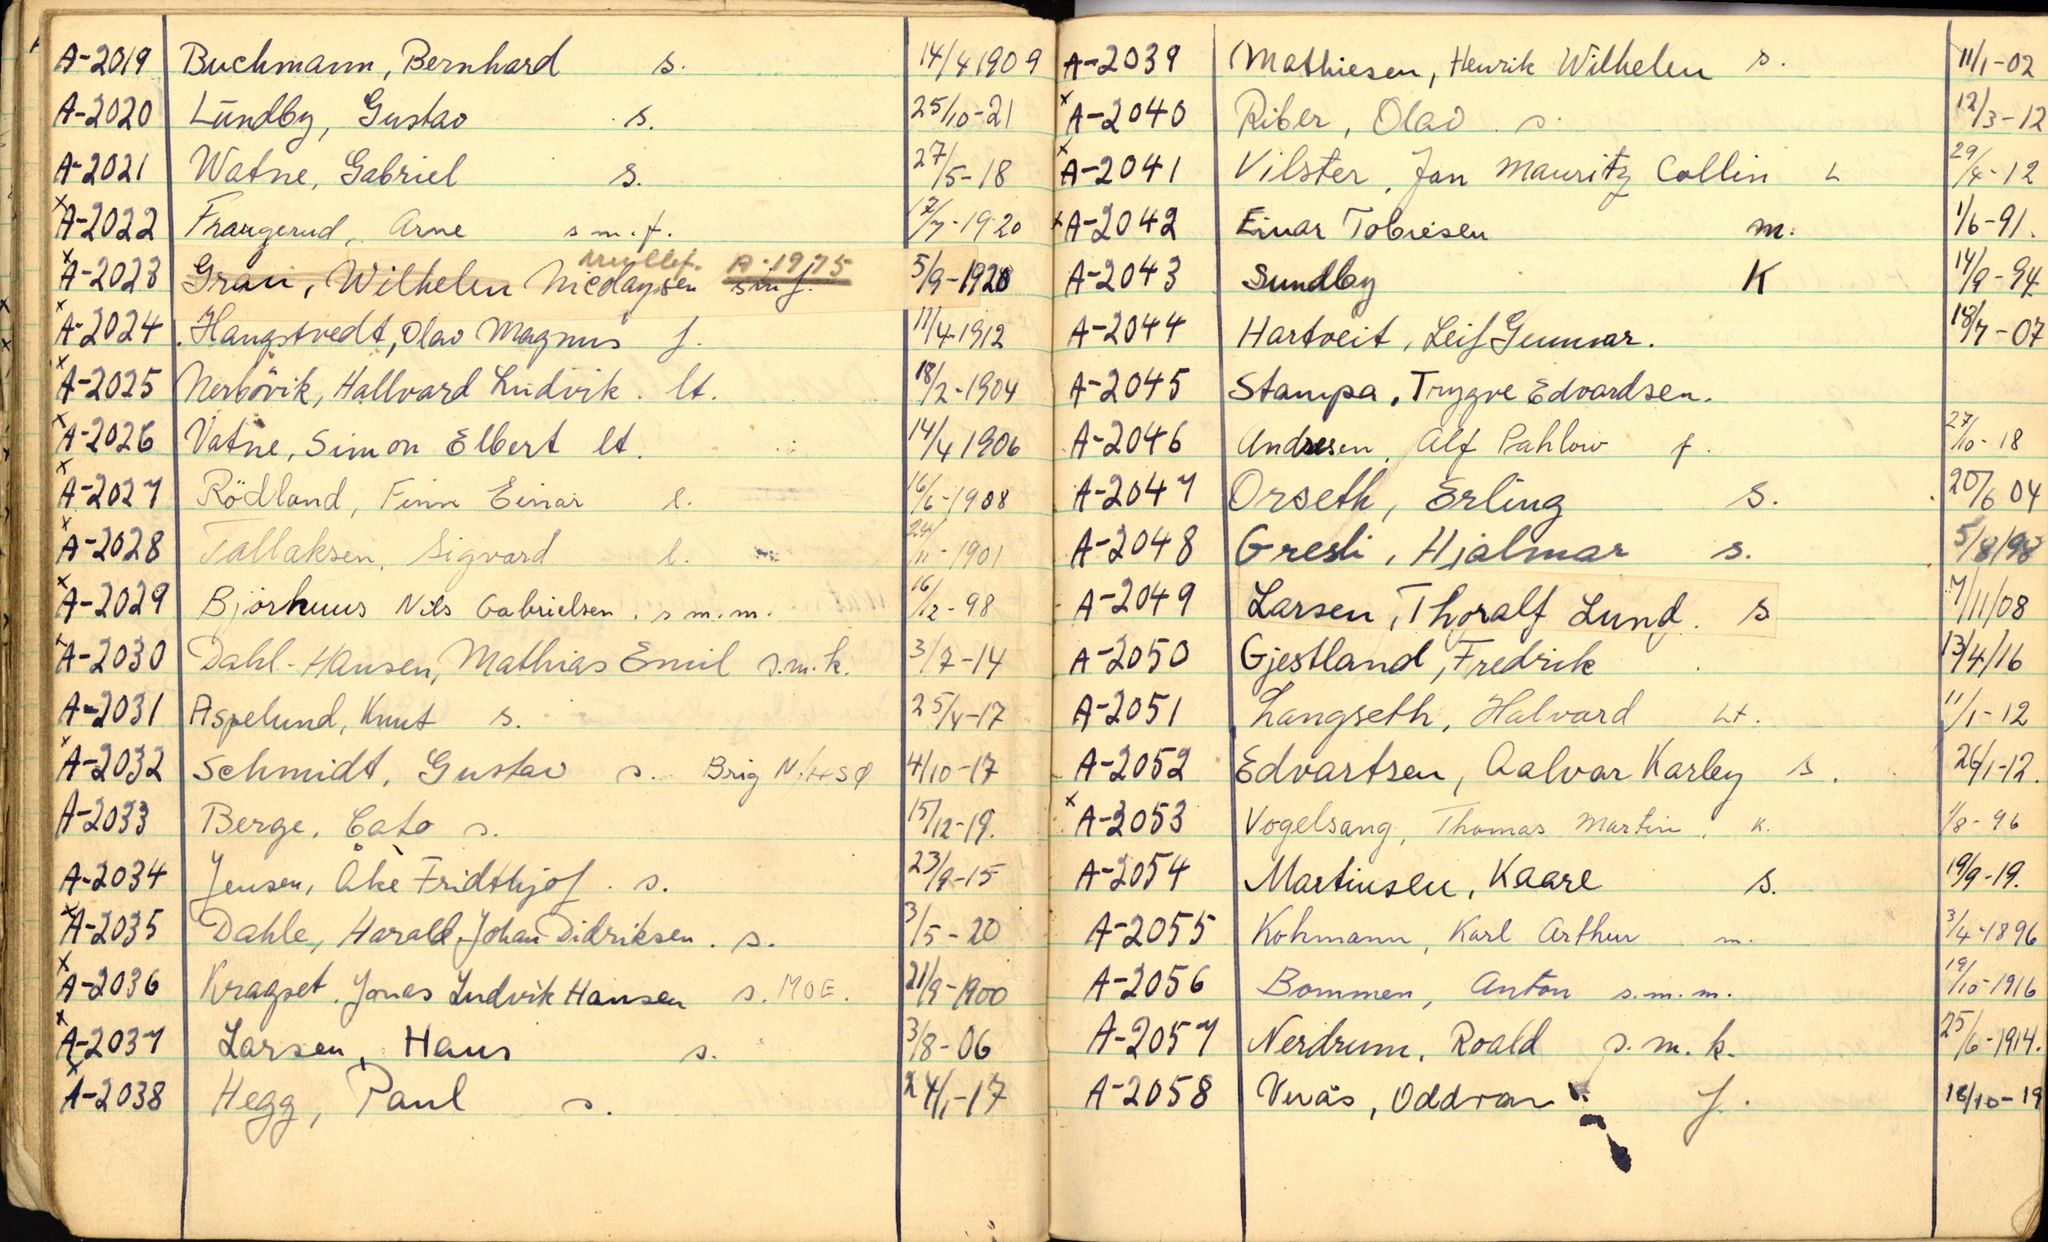 A-2019 Buchmann, Bernhard s. 14/4 1909
A-2020 Lundby, Gustav s. 25/10-21
A-2021 Watne, Gabriel s. 27/5-18
x A-2022 Frangerud, Arne s.m.f. 17/7-1920
x A-2023 Gran, Wilhelm Nicolaysen A-1975 5/9-1920
x A-2024 Haugstvedt, Olav Magnus f. 11/4 1912
x A-2025 Nerbövik, Hallvard Ludvik. lt. 18/2-1904
x A-2026 Vatne, Simon Elbert lt. 14/4 1906
x A-2027 Rödland, Finn Einar l. 16/6-1908
x A-2028 Tallaksen, Sigvard l. 24/11-1901
x A-2029 Bjorhuus Nils Gabrielsen. s m.m. 16/12-98
x A-2030 Dahl-Hansen, Mathias Emil s.m.k. 3/7-14
A-2031 Aspelund, Knut s. 25/4-17
x A-2032 Schmidt, Gustav s. Brig N/HSØ 4/10-17
A-2033 Berge, Cato s. 15/12-19.
A-2034 Jensen, Åke Fridthjof. s. 23/9-15
x A-2035 Dahle, Harald Johan Didriksen. s. 3/5-20
x A-2036 Kragset. Jonas Ludvik Hansen s. MOE. 21/9-1900
x A-2037 Larsen, Hans s. 3/8-06
x A-2038 Hegg, Paul s. 24/1-17
A-2039 Mathiesen, Henrik Wilhelm s. 11/1-02
x A-2040 Riber, Olav s. 12/3-12
x A-2041 Vilster, Jan Mauritz Collin L 29/4-12
x A-2042 Einar Tobiesen m. 1/6-91.
A-2043 Sundby K 14/9-94
A-2044 Hartveit, Leif Gunnar. 18/7-07
A-2045 Stampa, Trygve Edvardsen.
A-2046 Andresen, Alf Pahlow f. 27/10-18
A-2047 Orseth, Erling s. 20/6 04
A-2048 Gresli, Hjalmar s. 5/8/98
A-2049 Larsen, Thoralf Lund. s 7/11/08
A-2050 Gjestland, Fredrik 13/4/16
A-2051 Langseth, Halvard Lt. 11/1-12
A-2052 Edvartsen, Aalvar Karley s. 26/1-12.
x A-2053 Vogelsang, Thomas Martin. K. 1/8-96
A-2054 Martinsen, Kaare s. 19/9-19.
A-2055 Kohmann, Karl Arthur m. 3/4-1896
A-2056 Bommen, Anton s.m.m. 19/10-1916
A-2057 Nerdrum, Roald s.m.k. 25/6-1914.
A-2058 Venås, Oddvar f. 18/10-19